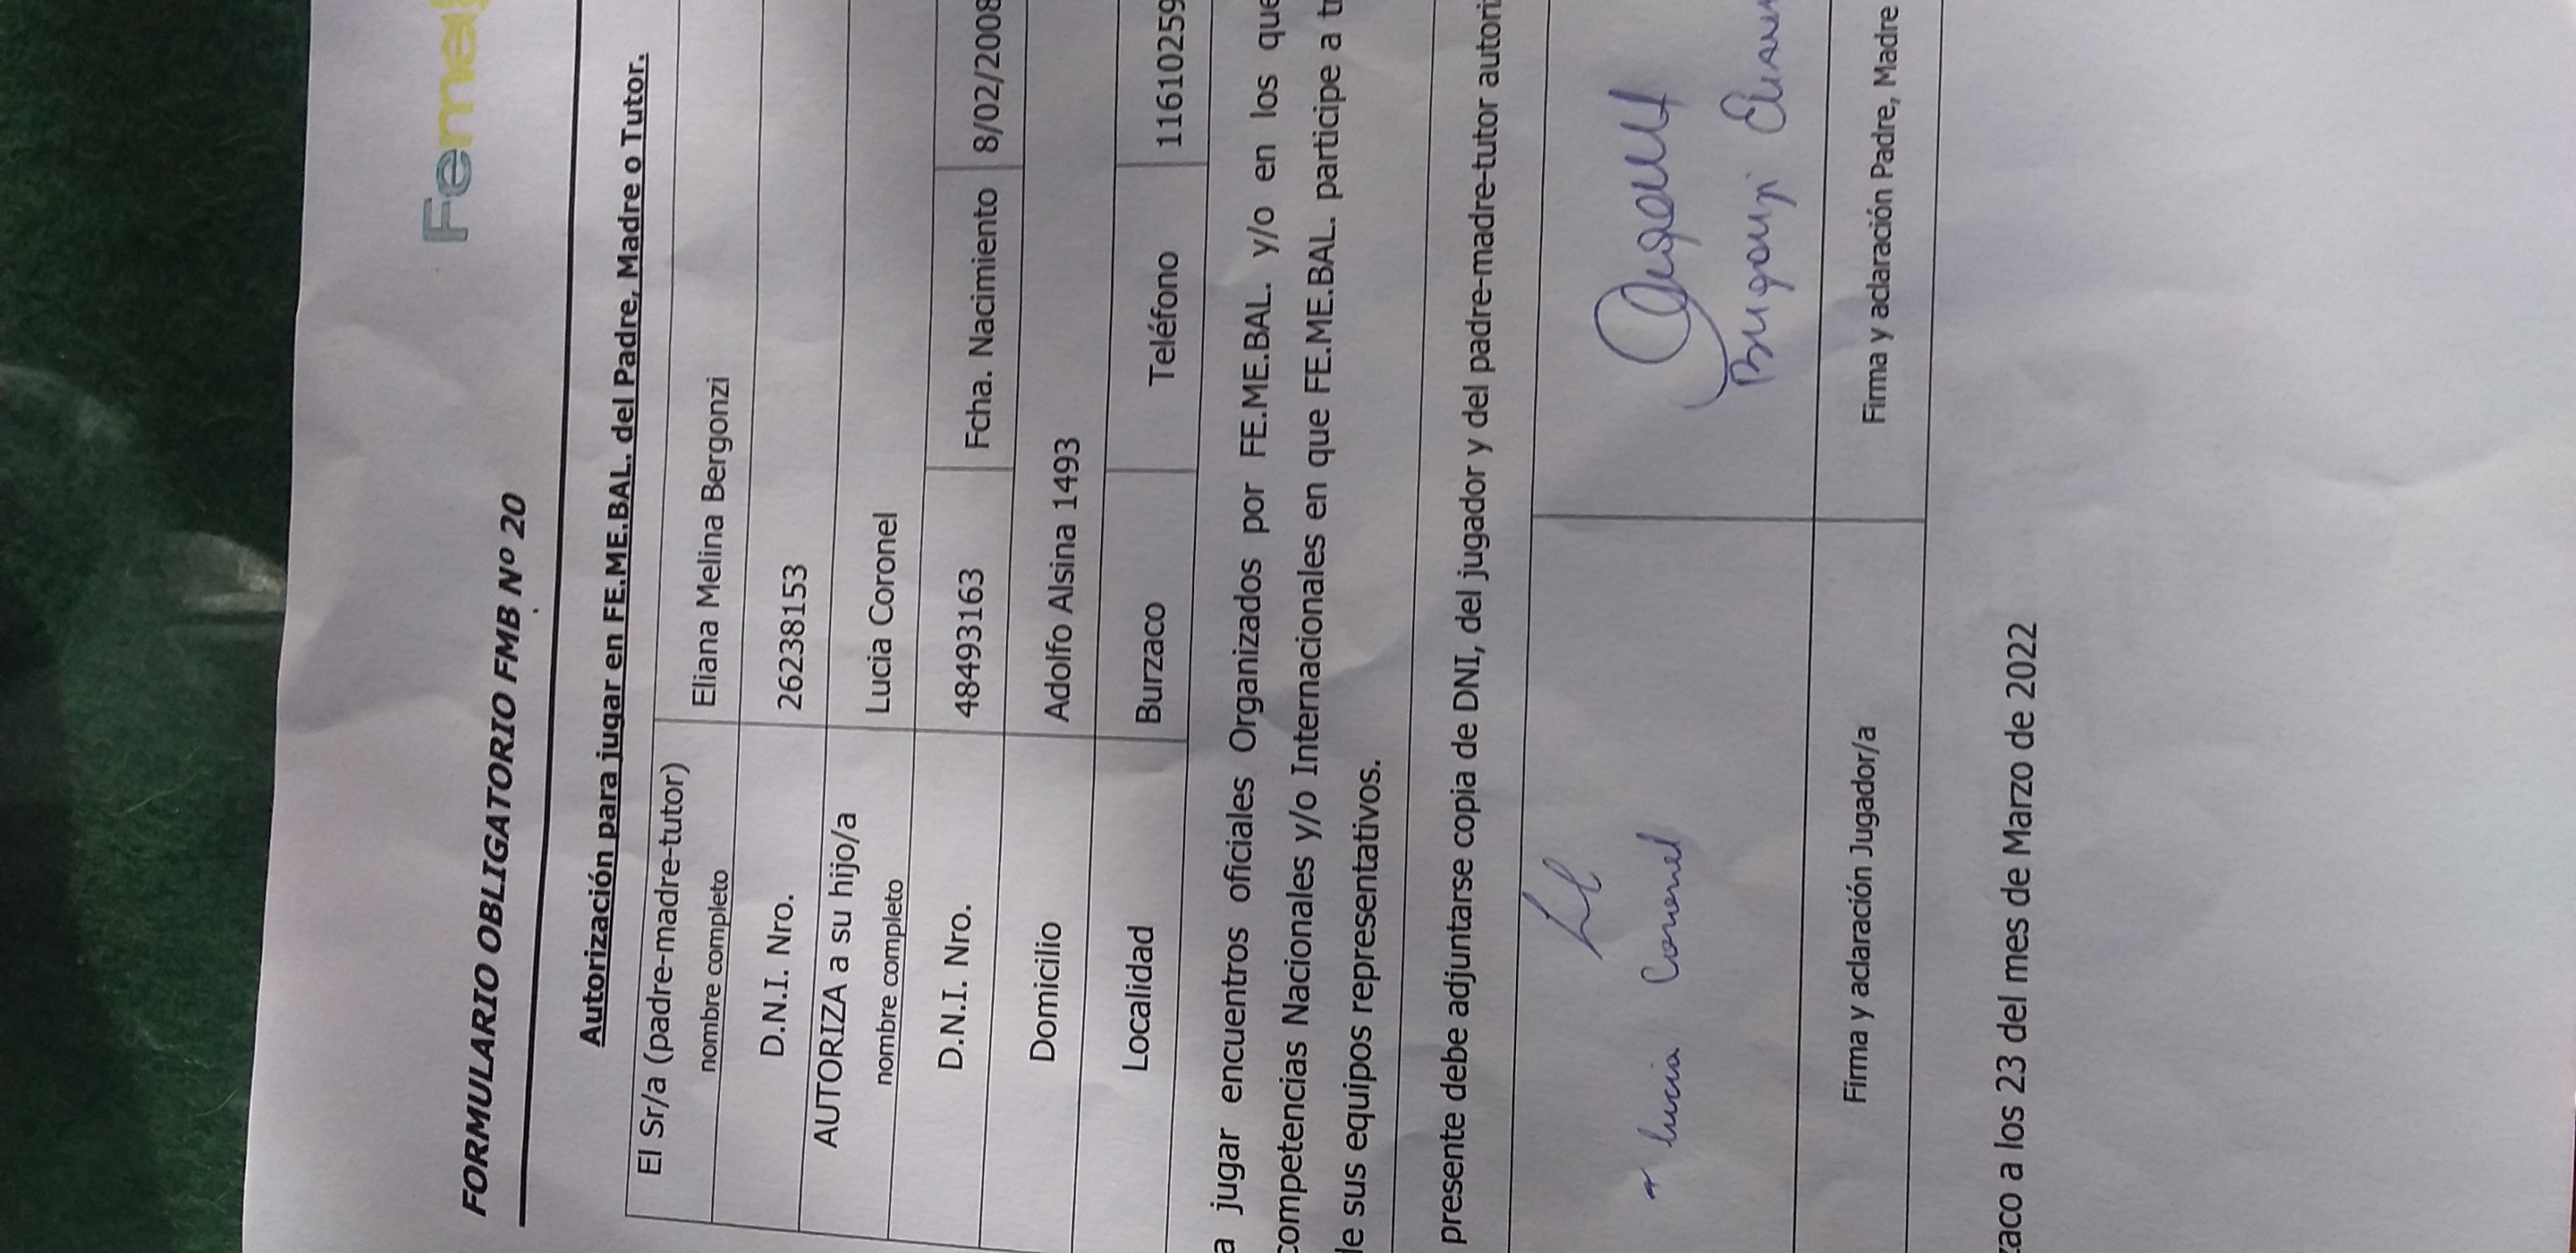 Femebal
FORMULARIO OBLIGATORIO FMB Nº 20
Autorización para jugar en FE.ME.BAL. del Padre, Madre o Tutor.
El Sr/a (padre-madre-tutor) nombre completo Eliana Melina Bergonzi
D.N.I. Nro. 26238153
AUTORIZA a su hijo/a nombre completo Lucia Coronel
D.N.I. Nro. 48493163 Fcha. Nacimiento 8/02/2008
Domicilio Adolfo Alsina 1493
Localidad Burzaco Teléfono 11610259
a jugar encuentros oficiales Organizados por FE.ME.BAL. y/o en los que
competencias Nacionales y/o Internacionales en que FE.ME.BAL. participe a tr
de sus equipos representativos.
presente debe adjuntarse copia de DNI, del jugador y del padre-madre-tutor autori
lucia Coronel
Firma y aclaración Jugador/a Firma y aclaración Padre, Madre
zaco a los 23 del mes de Marzo de 2022